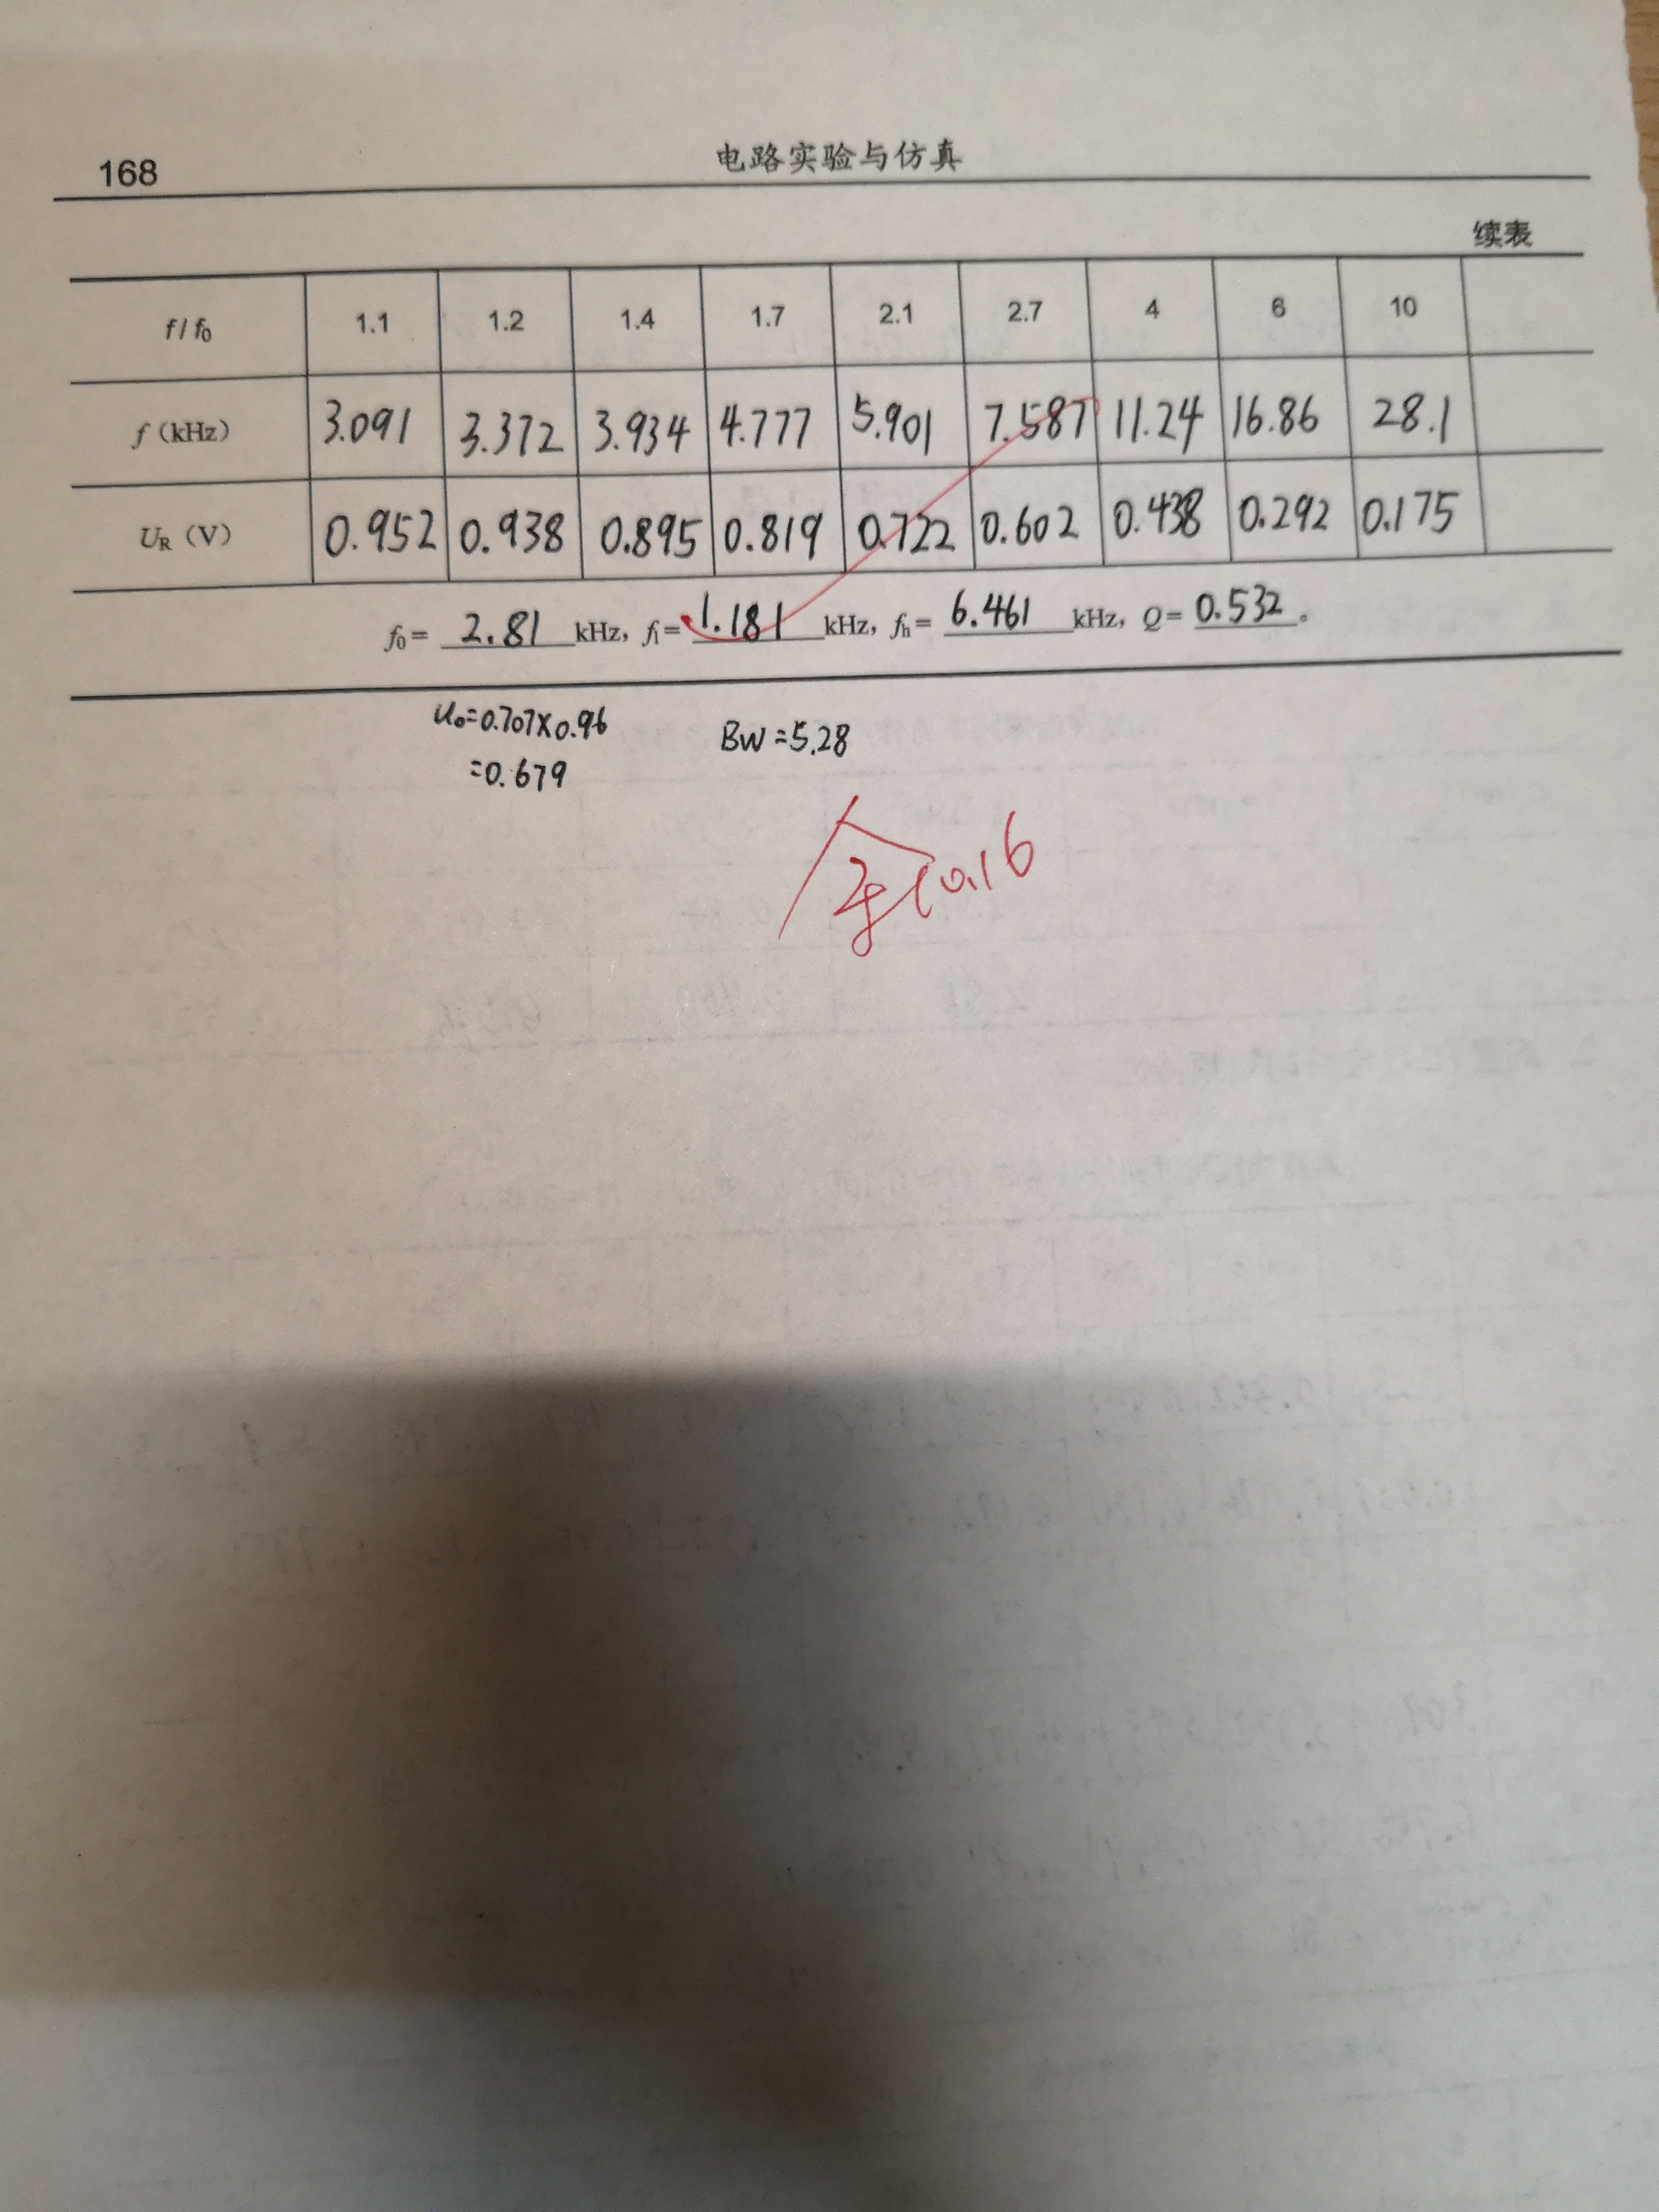 168 电路实验与仿真
续表
f / f₀ 1.1 1.2 1.4 1.7 2.1 2.7 4 6 10
f (kHz) 3.091 3.372 3.934 4.777 5.901 7.587 11.24 16.86 28.1
U_R (V) 0.952 0.938 0.895 0.819 0.722 0.602 0.438 0.292 0.175
f₀= 2.81 kHz, f_l= 1.181 kHz, f_h= 6.461 kHz, Q= 0.532 。
U₀=0.707×0.96 BW=5.28
=0.679
10.16